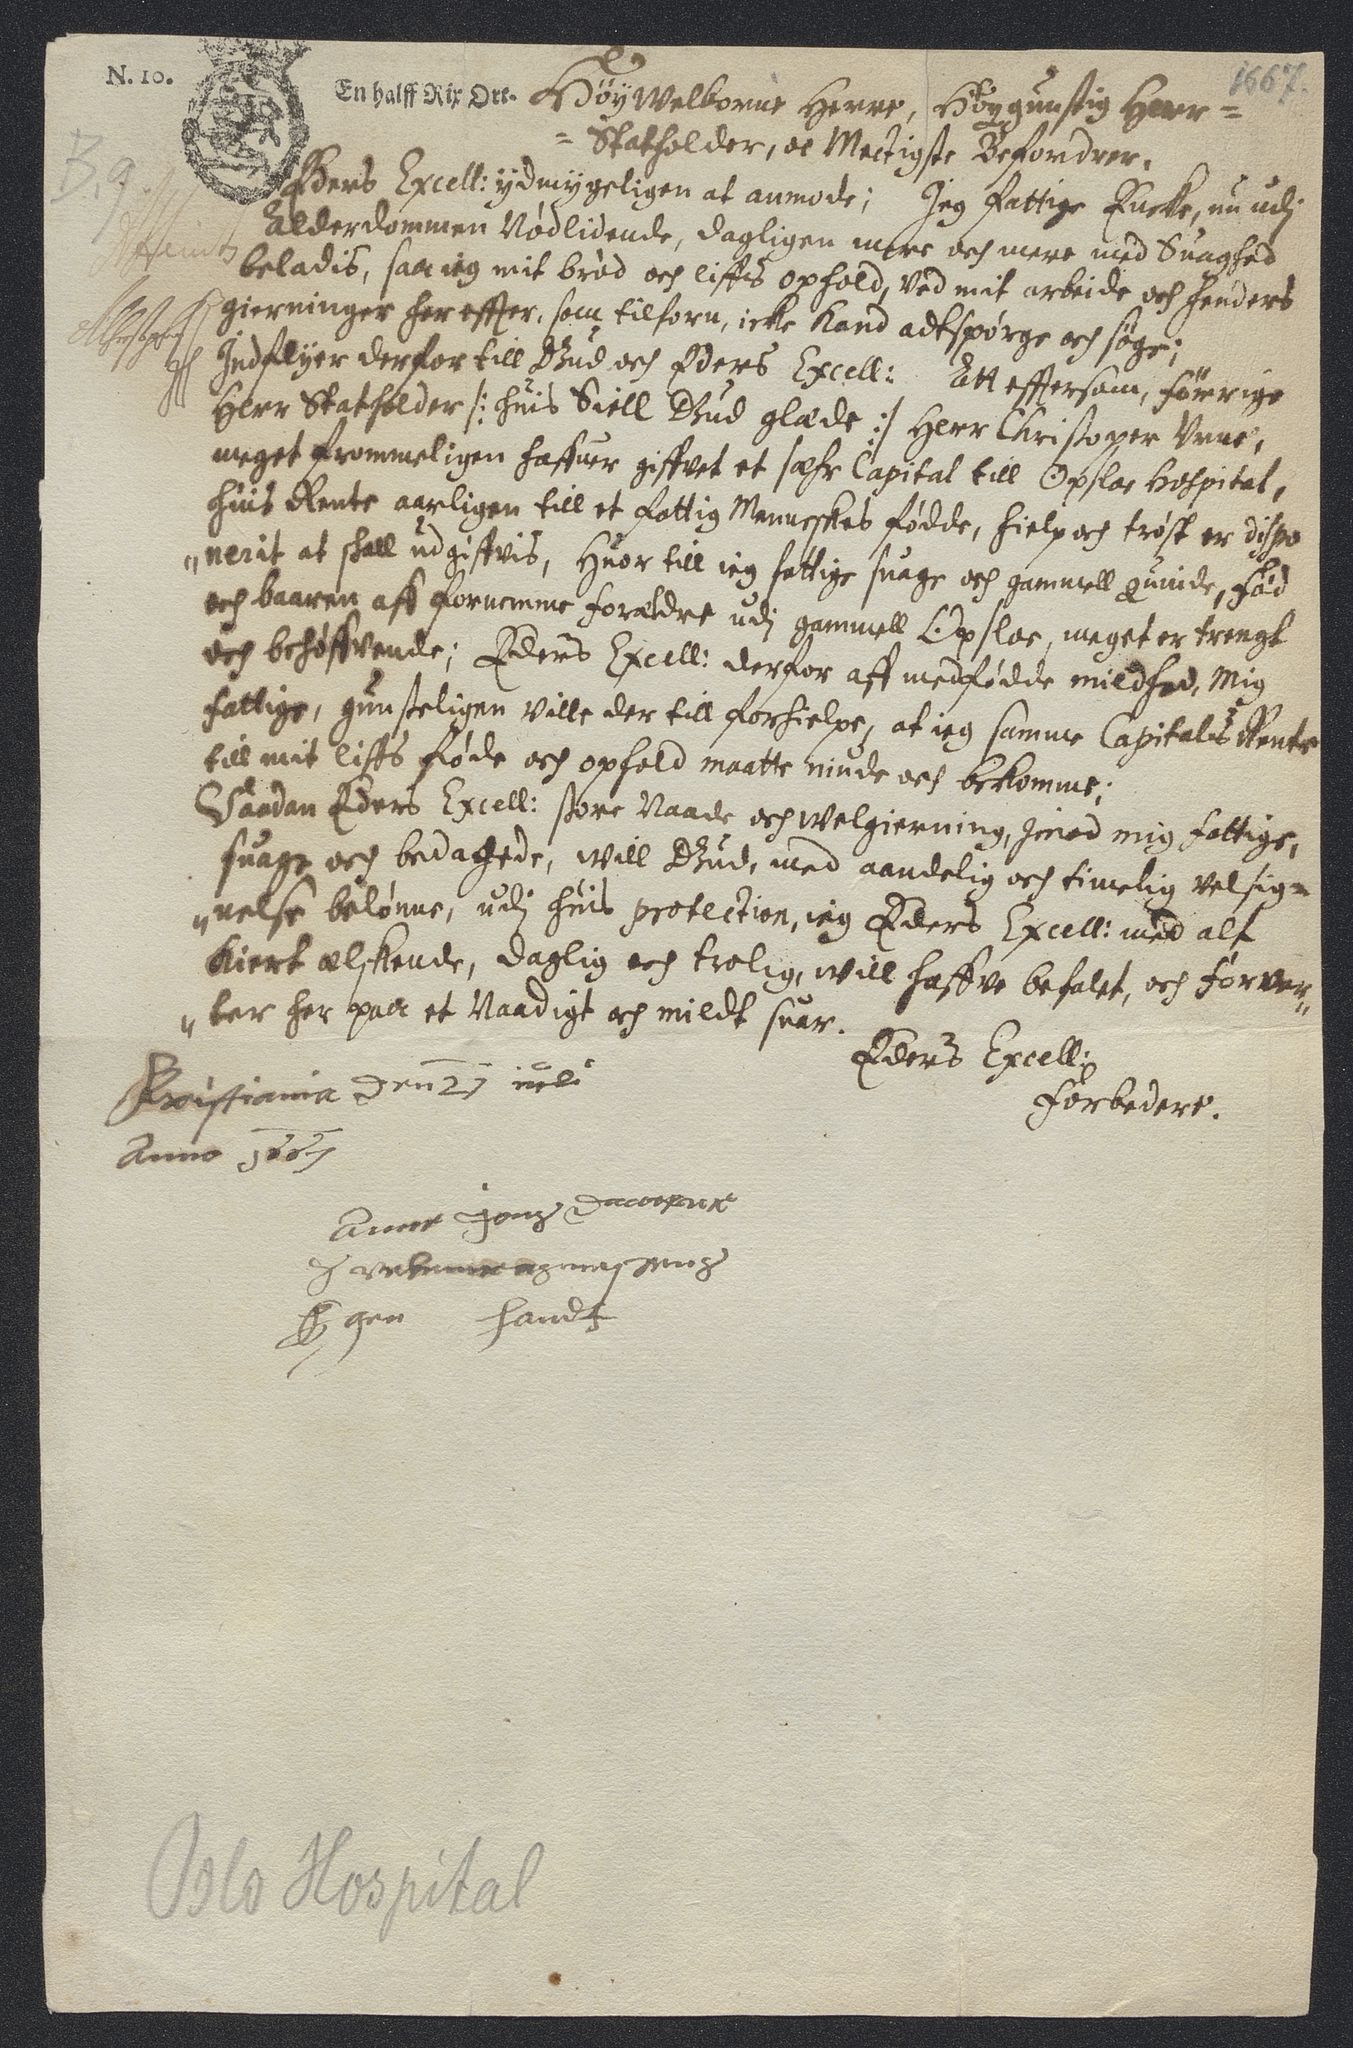 N. 10.
1667.
En halff Rix Ort.
B. 9
Høy Welborne Herre, Høygunstig Herr=
= Statholder, oc Mectigste Befordrer.
Eders Excell: ydmygeligen at anmode; Jeg fattige Encke, nu udj
Alderdommen Nødlidende, dagligen mere och mere med Suaghed
beladis, saa ieg mit brød och liffis ophold, ved mit arbeide och henders
gierninger her effter, som tilforn, icke kand adtspørge och søge;
Indflyer derfor till Gud och Eders Excell: Att efftersom, førrige
Herr Statholder /: huis Siell Gud glæde :/ Herr Christoper Vrne,
meget frommeligen haffuer giffvet et sæhr Capital till Opsloe Hospital,
huis Rente aarligen till et fattig Menneskes fødde, hielp och trøst er dispo
"nerit at skall udgiffvis, Huor till ieg fattige suage och gammell quinde, fød
och baaren aff fornemme forældre udj gammell Opsloe, meget er trengt
och behøffvende; Eders Excell: derfor aff medfødde mildhed, Mig
fattige, gunsteligen ville der till forhielpe, at ieg samme Capitals Rente
till mit liffs føde och ophold maatte niude och bekomme;
Saadan Eders Excell: store Naade och welgierning, imod mig fattige,
suage och bedagede, will Gud, med aandelig och timelig velsig=
"nelse belønne, udj huis protection, ieg Eders Excell: med alt
kiert ælskende, daglig och trolig, will haffve befalet, och forver"
"ter her paa et Naadigt och mildt suar.
Eders Excell:
Forbedere.
Kristiania den 27 iuli
Anno 1667
Anne
Egen handt
Oslo Hospital